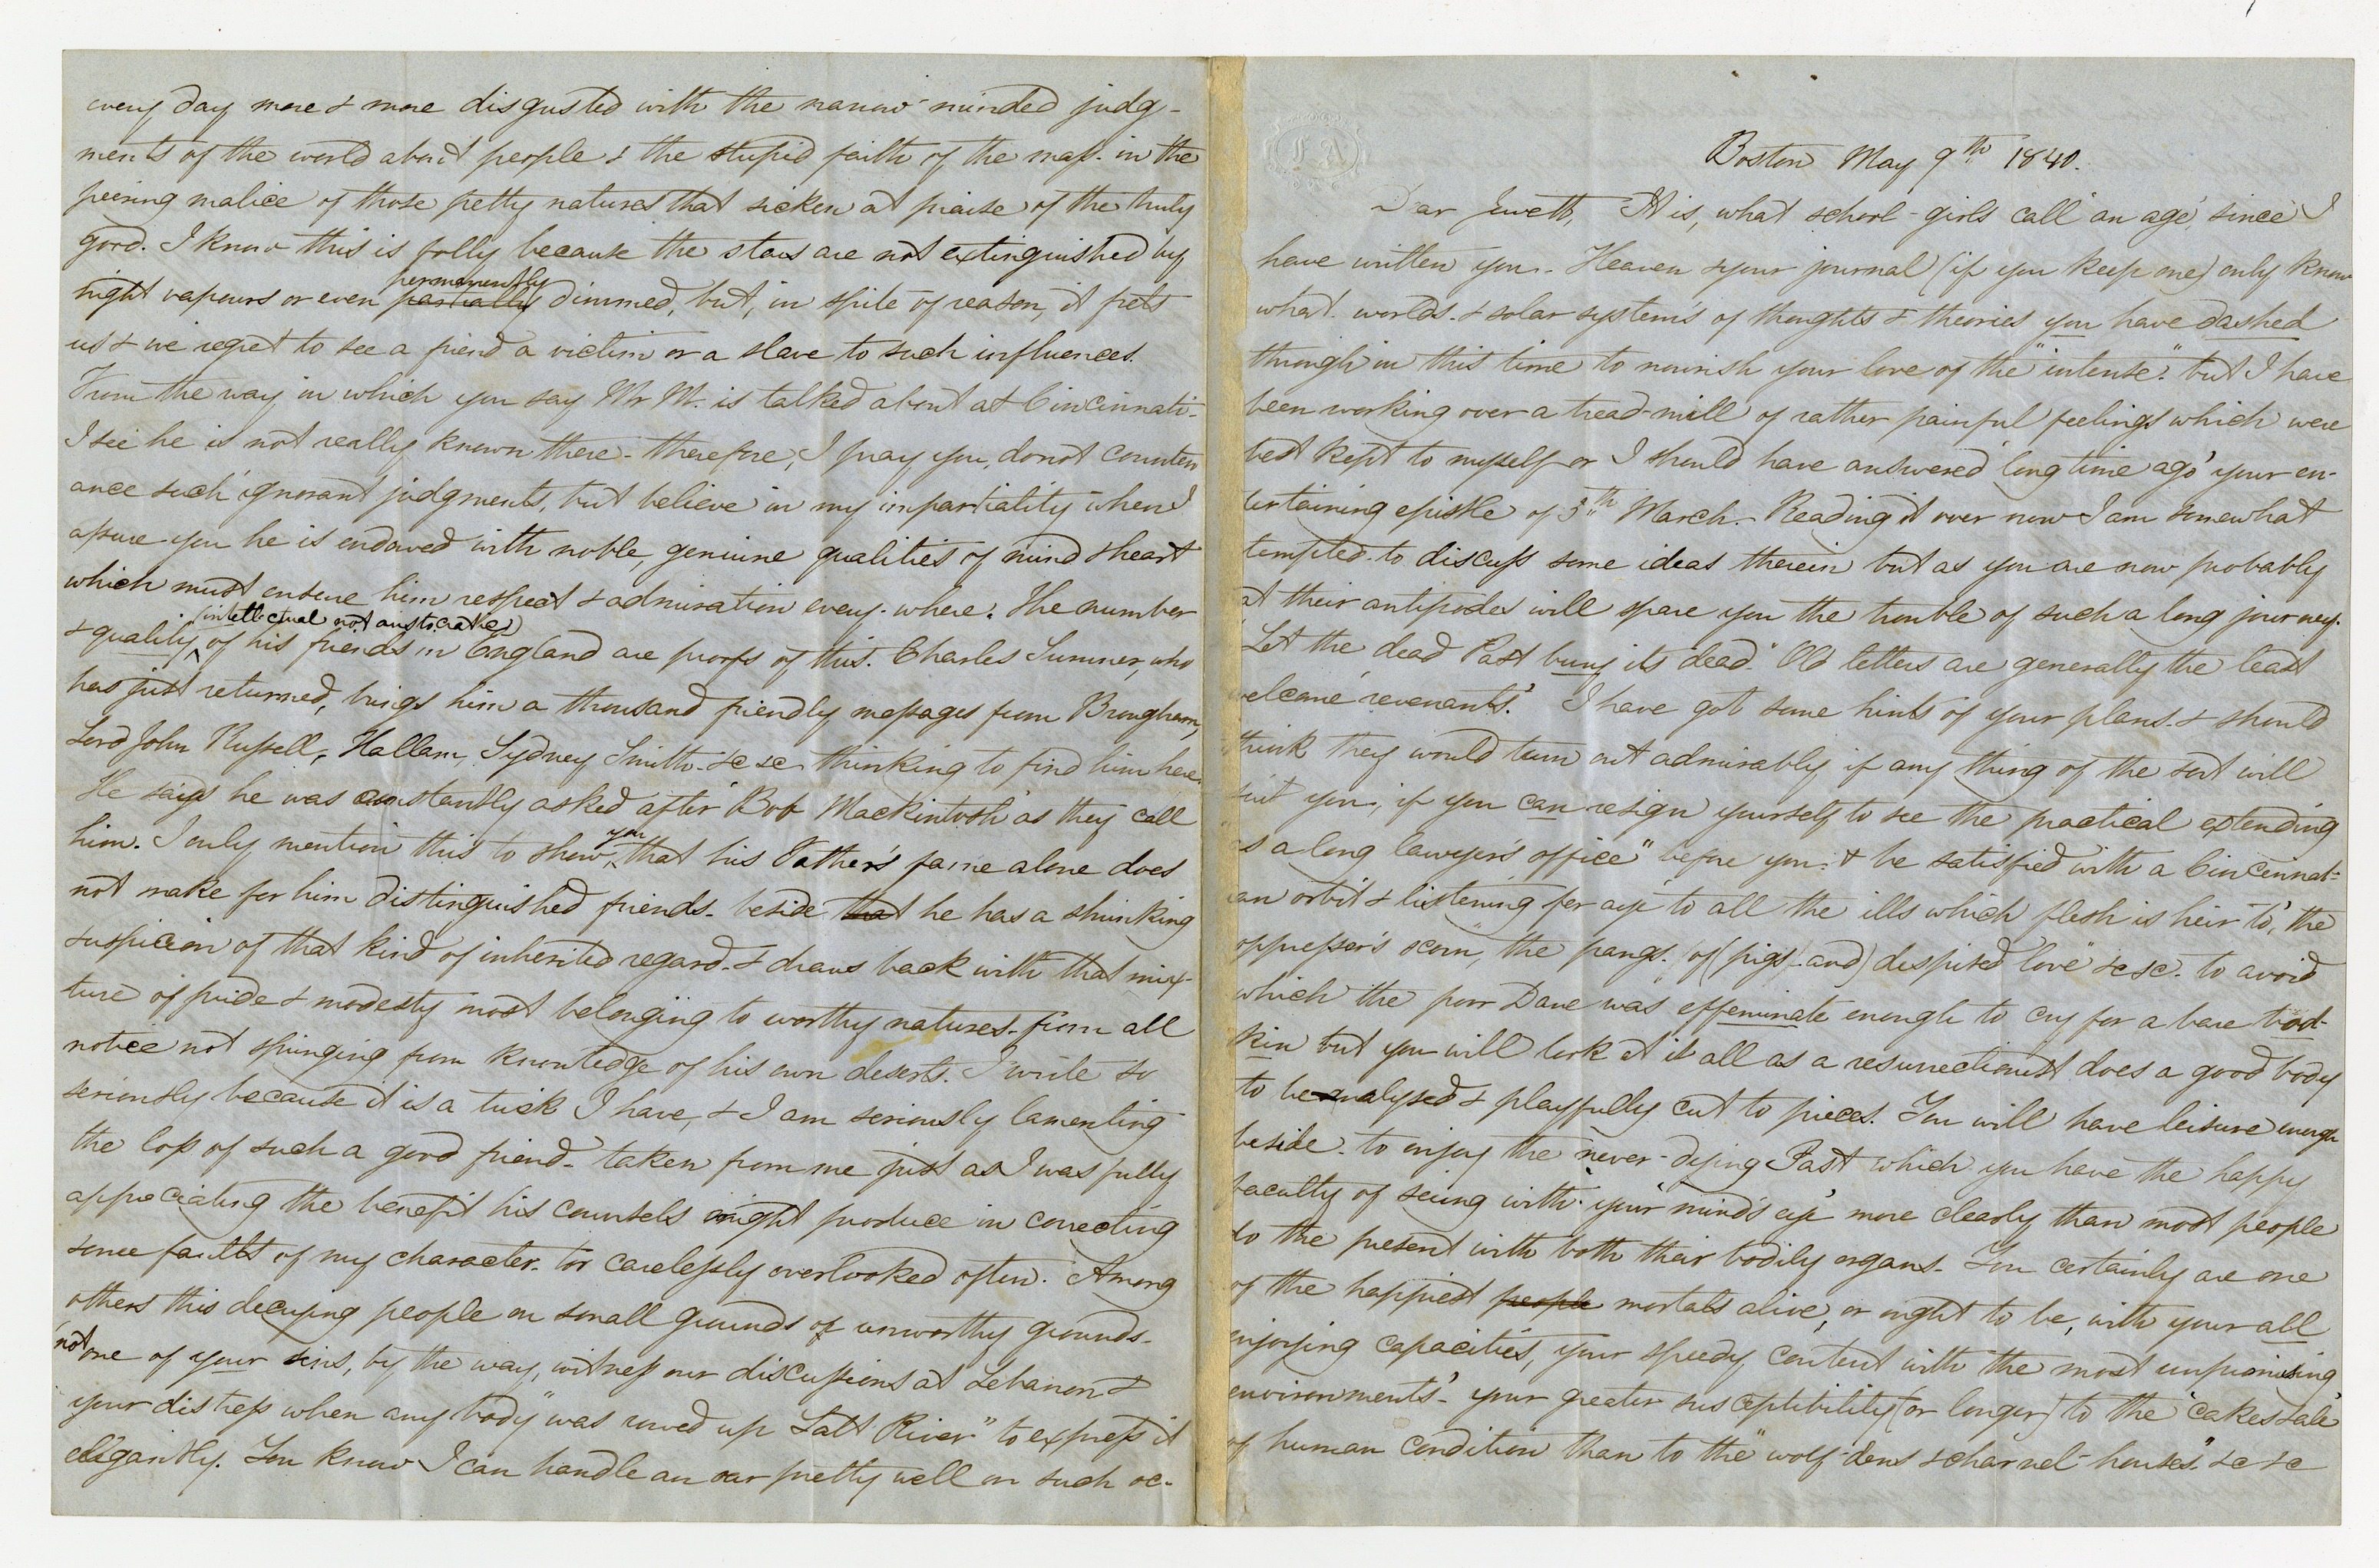 every day more & more disgusted with the narrow-minded judg-
ments of the world about people & the stupid faith of the mass in the
peering malice of those petty natures that sicken at praise of the truly
good. I know this is folly because the stars are not extinguished by
permanently
night vapours or even partially dimmed, but, in spite of reason, it frets
us & we regret to see a friend a victim or a slave to such influences.
From the way in which you say Mr M. is talked about at Cincinnati-
I see he is not really known there - therefore, I pray you, do not counten
ance such ignorant judgments, but believe in my impartiality when I
assure you he is endowed with noble, genuine qualities of mind & heart
which must ensure him respect & admiration every-where. The number
(intellectual not aristocratic)
& quality of his friends in England are proofs of this. Charles Sumner, who
has just returned, brings him a thousand friendly messages from Brougham,
Lord John Russell, Hallam, Sydney Smith &c &c thinking to find him here.
He says he was constantly asked after 'Bob Mackintosh' as they call
you
him. I only mention this to show that his Father's fame alone does
not make for him distinguished friends - beside that he has a shrinking
suspicion of that kind of inherited regard - & draws back with that mix-
ture of pride & modesty most belonging to worthy natures - from all
notice not springing from knowledge of his own deserts. I write so
seriously because it is a trick I have, & I am seriously lamenting
the loss of such a good friend - taken from me just as I was fully
appreciating the benefit his counsels might produce in correcting
some faults of my character - too carelessly overlooked often. Among
others this decrying people on small grounds or unworthy grounds -
not one of your sins, by the way, witness our discussions at Lebanon &
your distress when any body "was rowed up Salt River" to express it
elegantly. You know I can handle an oar pretty well on such oc-
Boston May 9th 1840.
Dear Jewett, It is, what school-girls call 'an age', since I
have written you. Heaven & your journal (if you keep one) only know
what worlds & solar systems of thoughts & theories you have dashed
through in this time to nourish your love of the "intense". but I have
been working over a tread-mill of rather painful feelings which were
best kept to myself or I should have answered 'long time ago' your en-
tertaining epistle of 5th March. Reading it over now I am somewhat
tempted to discuss some ideas therein but as you are now probably
at their antipodes will spare you the trouble of such a long journey.
"Let the dead Past bury its dead." Old letters are generally the least
welcome 'revenants'. I have got some hints of your plans - & should
think they would turn out admirably if any thing of the sort will
suit you, if you can resign yourself to see the practical extending
"as a long lawyer's office" before you & be satisfied with a Cincinnat-
ian orbit & listening for aye to all the 'ills which flesh is heir to', the
oppressor's scorn, the pangs of (pigs and) despised love" &c &c. to avoid
which the poor Dane was effeminate enough to cry for a bare bod-
kin but you will look at it all as a resurrectionist does a good body
to be analysed & playfully cut to pieces. You will have leisure enough
beside to enjoy the never-dying Past which you have the happy
faculty of seeing with your 'mind's eye' more clearly than most people
do the present with both their bodily organs. You certainly are one
of the happiest people mortals alive, or ought to be, with your all
enjoying capacities, your speedy content with 'the most unpromising
environments' - your greater susceptibility (or longer) to the 'cakes & ale'
of human condition than to the "wolf-dens & charnel-houses" &c &c